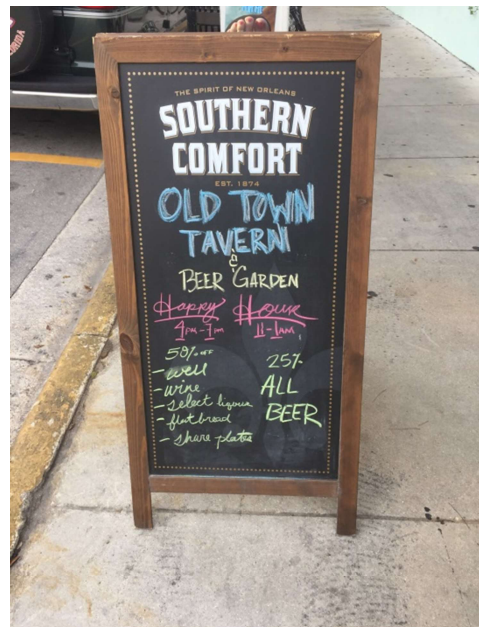 FLORIDA
THE SPIRIT OF NEW ORLEANS
SOUTHERN
COMFORT
EST. 1874
OLD TOWN
TAVERN
&
BEER GARDEN
Happy Hour
4PM-7PM 11-1AM
50% OFF
- well
- wine
- select liquor
- flatbread
- share plates
25%
ALL
BEER